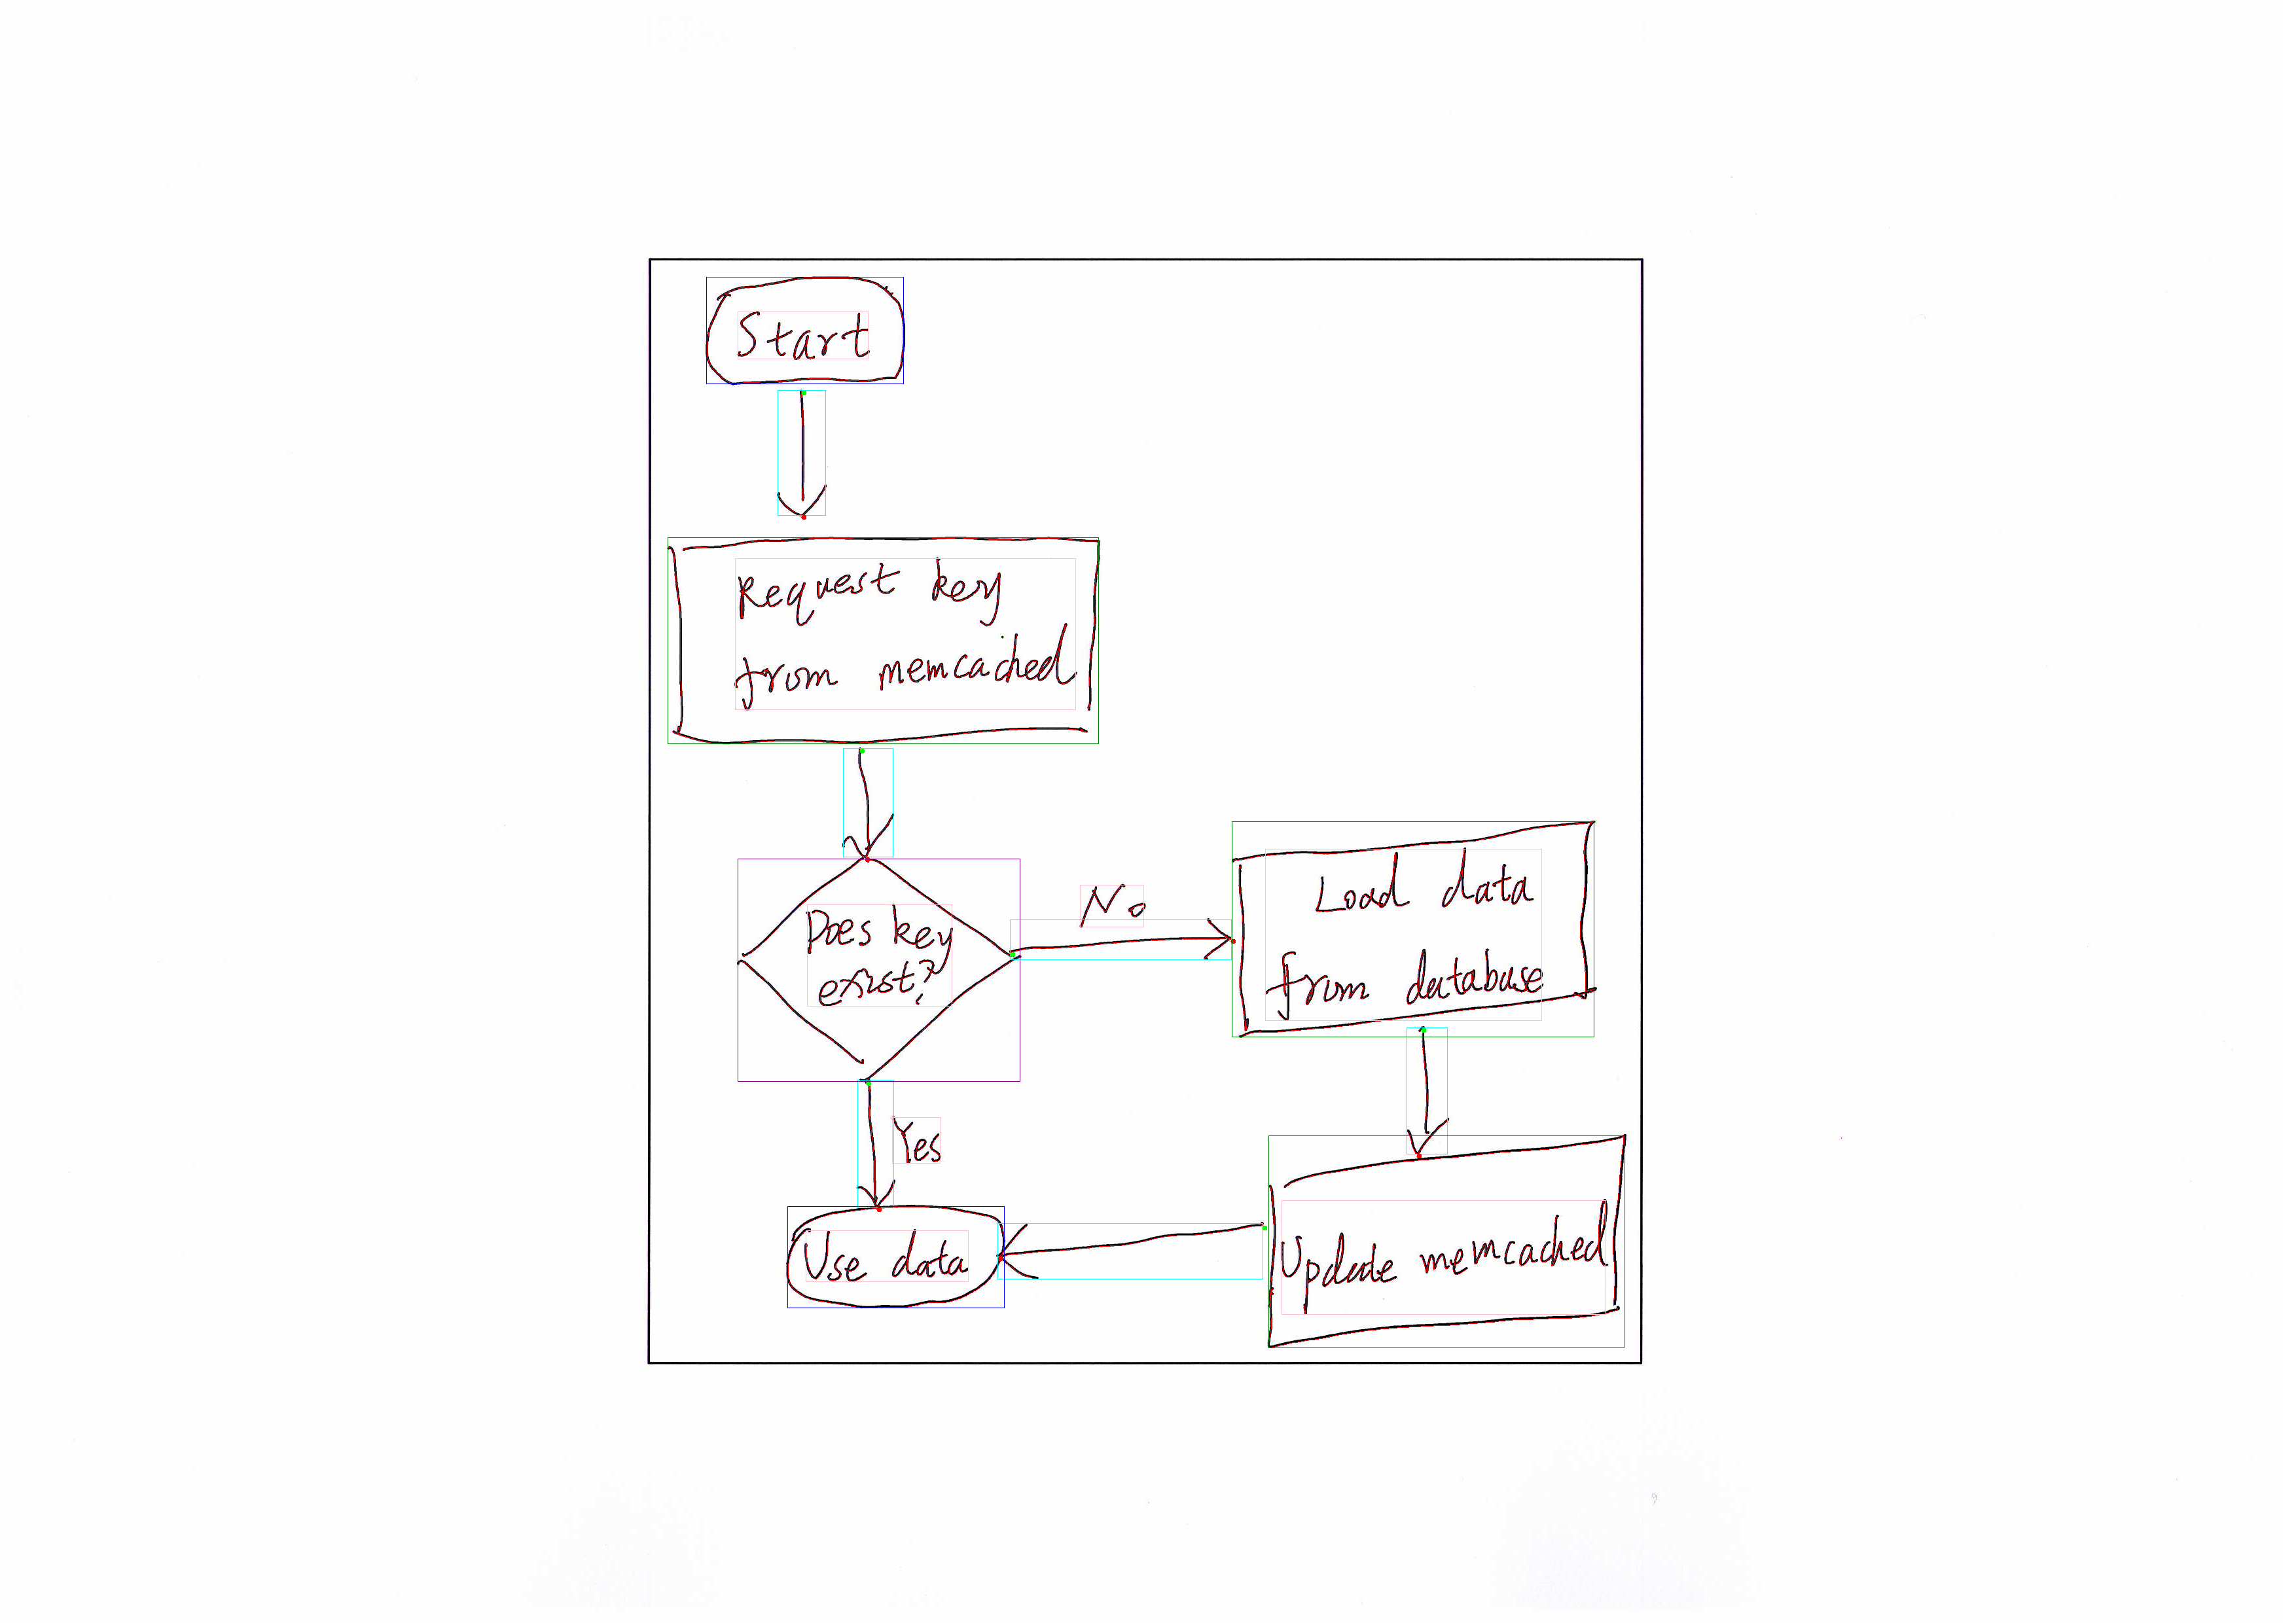 Start
Request key
from memcached
Does key
exist?
No
Load data
from database
Yes
Use data
Update memcached
9